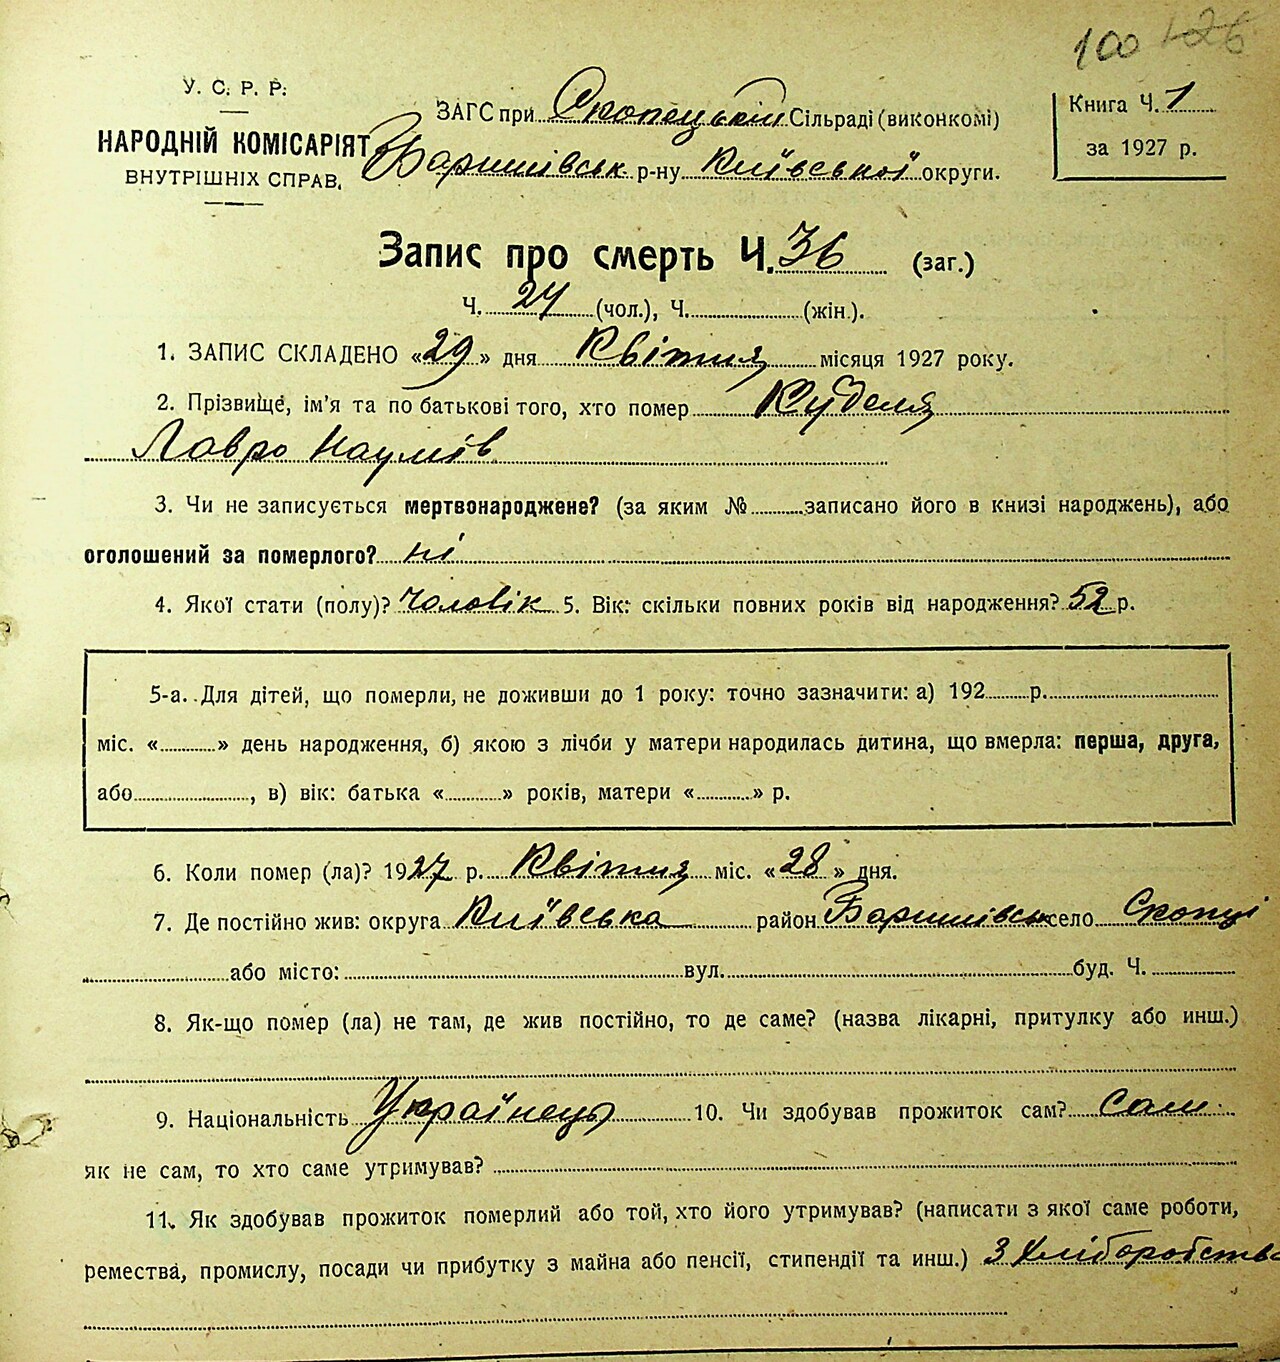 100 126
У. С. Р. Р.
НАРОДНІЙ КОМІСАРІЯТ
ВНУТРІШНІХ СПРАВ.
ЗАГС при Скопецькій Сільраді (виконкомі)
Баришівськ р-ну Київської округи.
Книга Ч. 1
за 1927 р.
Запис про смерть Ч. 36 (заг.)
Ч. 24 (чол.), Ч. (жін.).
1. ЗАПИС СКЛАДЕНО «29» дня Квітня місяця 1927 року.
2. Прізвище, ім'я та по батькові того, хто помер Куделя
Лавро Наумів
3. Чи не записується мертвонароджене? (за яким № записано його в книзі народжень), або
оголошений за померлого? ні
4. Якої стати (полу)? Чоловік 5. Вік: скільки повних років від народження? 52 р.
5-а. Для дітей, що померли, не доживши до 1 року: точно зазначити: а) 192 р.
міс. « » день народження, б) якою з лічби у матери народилась дитина, що вмерла: перша, друга,
або , в) вік: батька « » років, матери « » р.
6. Коли помер (ла)? 1927 р. Квітня міс. «28» дня.
7. Де постійно жив: округа Київська район Баришівськ село Скопці
або місто: вул. буд. Ч.
8. Як-що помер (ла) не там, де жив постійно, то де саме? (назва лікарні, притулку або инш.)
9. Національність Українець 10. Чи здобував прожиток сам? Сам
як не сам, то хто саме утримував?
11. Як здобував прожиток померлий або той, хто його утримував? (написати з якої саме роботи,
ремества, промислу, посади чи прибутку з майна або пенсії, стипендії та инш.) З хліборобства